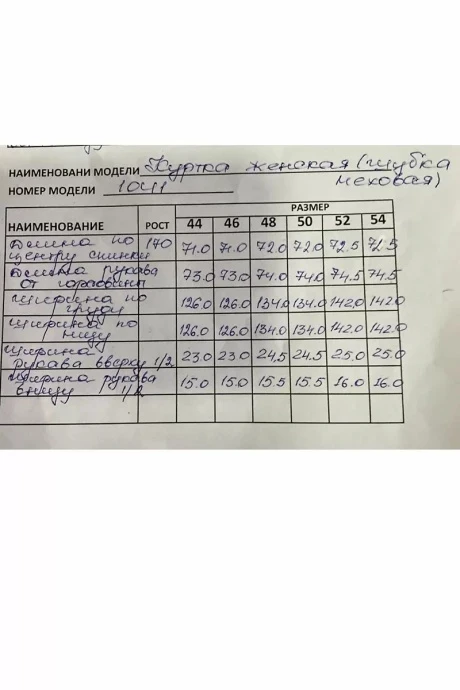 НАИМЕНОВАНИ МОДЕЛИ Куртка женская (шубка
меховая)
НОМЕР МОДЕЛИ 1041
РАЗМЕР
НАИМЕНОВАНИЕ РОСТ 44 46 48 50 52 54
Длина по 170
центру спинки 71.0 71.0 72.0 72.0 72.5 72.5
Длина рукава
от горловины 73.0 73.0 74.0 74.0 74.5 74.5
Ширина по
груди 126.0 126.0 134.0 134.0 142.0 142.0
Ширина по
низу 126.0 126.0 134.0 134.0 142.0 142.0
Ширина
рукава вверху 1/2 23.0 23.0 24,5 24.5 25.0 25.0
Ширина рукава
внизу 1/2 15.0 15.0 15.5 15.5 16.0 16.0